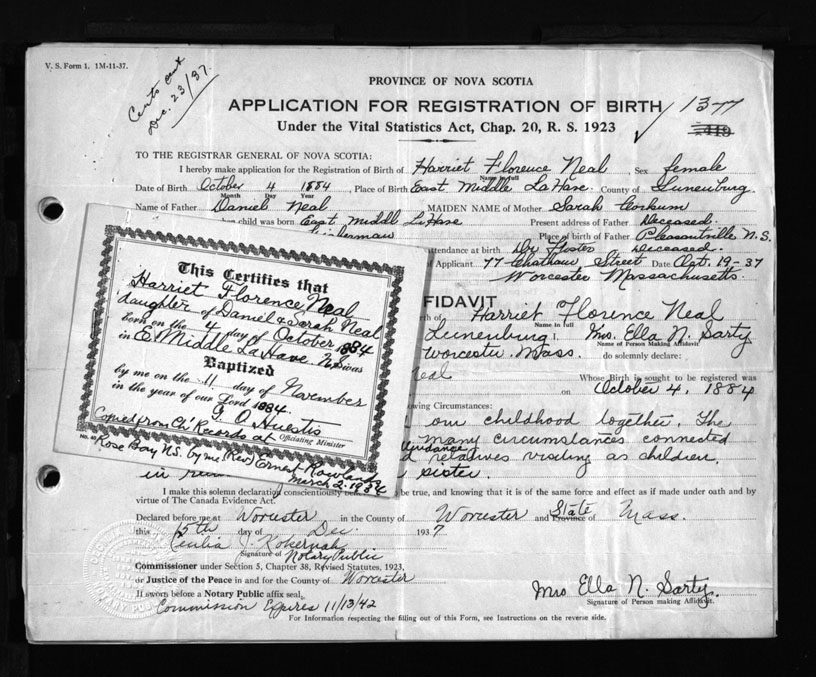 V. S. Form 1. 1M-11-37.
Dec. 23/37.
PROVINCE OF NOVA SCOTIA
APPLICATION FOR REGISTRATION OF BIRTH
Under the Vital Statistics Act, Chap. 20, R. S. 1923
1377
TO THE REGISTRAR GENERAL OF NOVA SCOTIA:
I hereby make application for the Registration of Birth of Harriet Florence Neal, Sex female
Name in full
Date of Birth October 4 1884, Place of Birth East Middle LaHave County of Lunenburg.
Month Day Year
Name of Father Daniel Neal MAIDEN NAME of Mother Sarah Corkum
child was born East Middl LaHave Present address of Father Deceased.
Fisherman Place of birth of Father Pleasantville N.S.
attendance at birth Dr Foster Deceased.
of Applicant 77 Chatham Street Date Oct. 19-37
Worcester Massachusetts.
This Certifies that
Harriet Florence Neal
daughter of Daniel & Sarah Neal
born on the 4 day of October 1884
in E. Middle La Have N.S was
Baptized
by me on the 11 day of November
in the year of our Lord 1884.
G. O. Huestis
Officiating Minister
Copied from Ch' Records at
No. 40
Rose Bay N.S. by me (Rev) Ernest Rowland
March 2. 1934
FFIDAVIT
rth of Harriet Florence Neal
Name in full
Lunenburg I. Mrs. Ella N. Sarty
Name of Person Making Affidavit
Worcester Mass. do solemnly declare:
eal Whose Birth is sought to be registered was
on October 4, 1884
owing Circumstances:
our childhood together. The
many circumstances connected
relatives visiting as children.
in sister.
I make this solemn declaration conscientiously be true, and knowing that it is of the same force and effect as if made under oath and by
virtue of The Canada Evidence Act.
Declared before me at Worcester in the County of Worcester and State Province of Mass.
this 15th day of Dec. 1937
Cecilia J. Kokernak
Signature of Notary Public
Commissioner under Section 5, Chapter 38, Revised Statutes, 1923,
or Justice of the Peace in and for the County of Worcester
If sworn before a Notary Public affix seal,
Commission Expires 11/13/42
Mrs Ella N. Sarty.
Signature of Person making Affidavit.
For Information respecting the filling out of this Form, see Instructions on the reverse side.